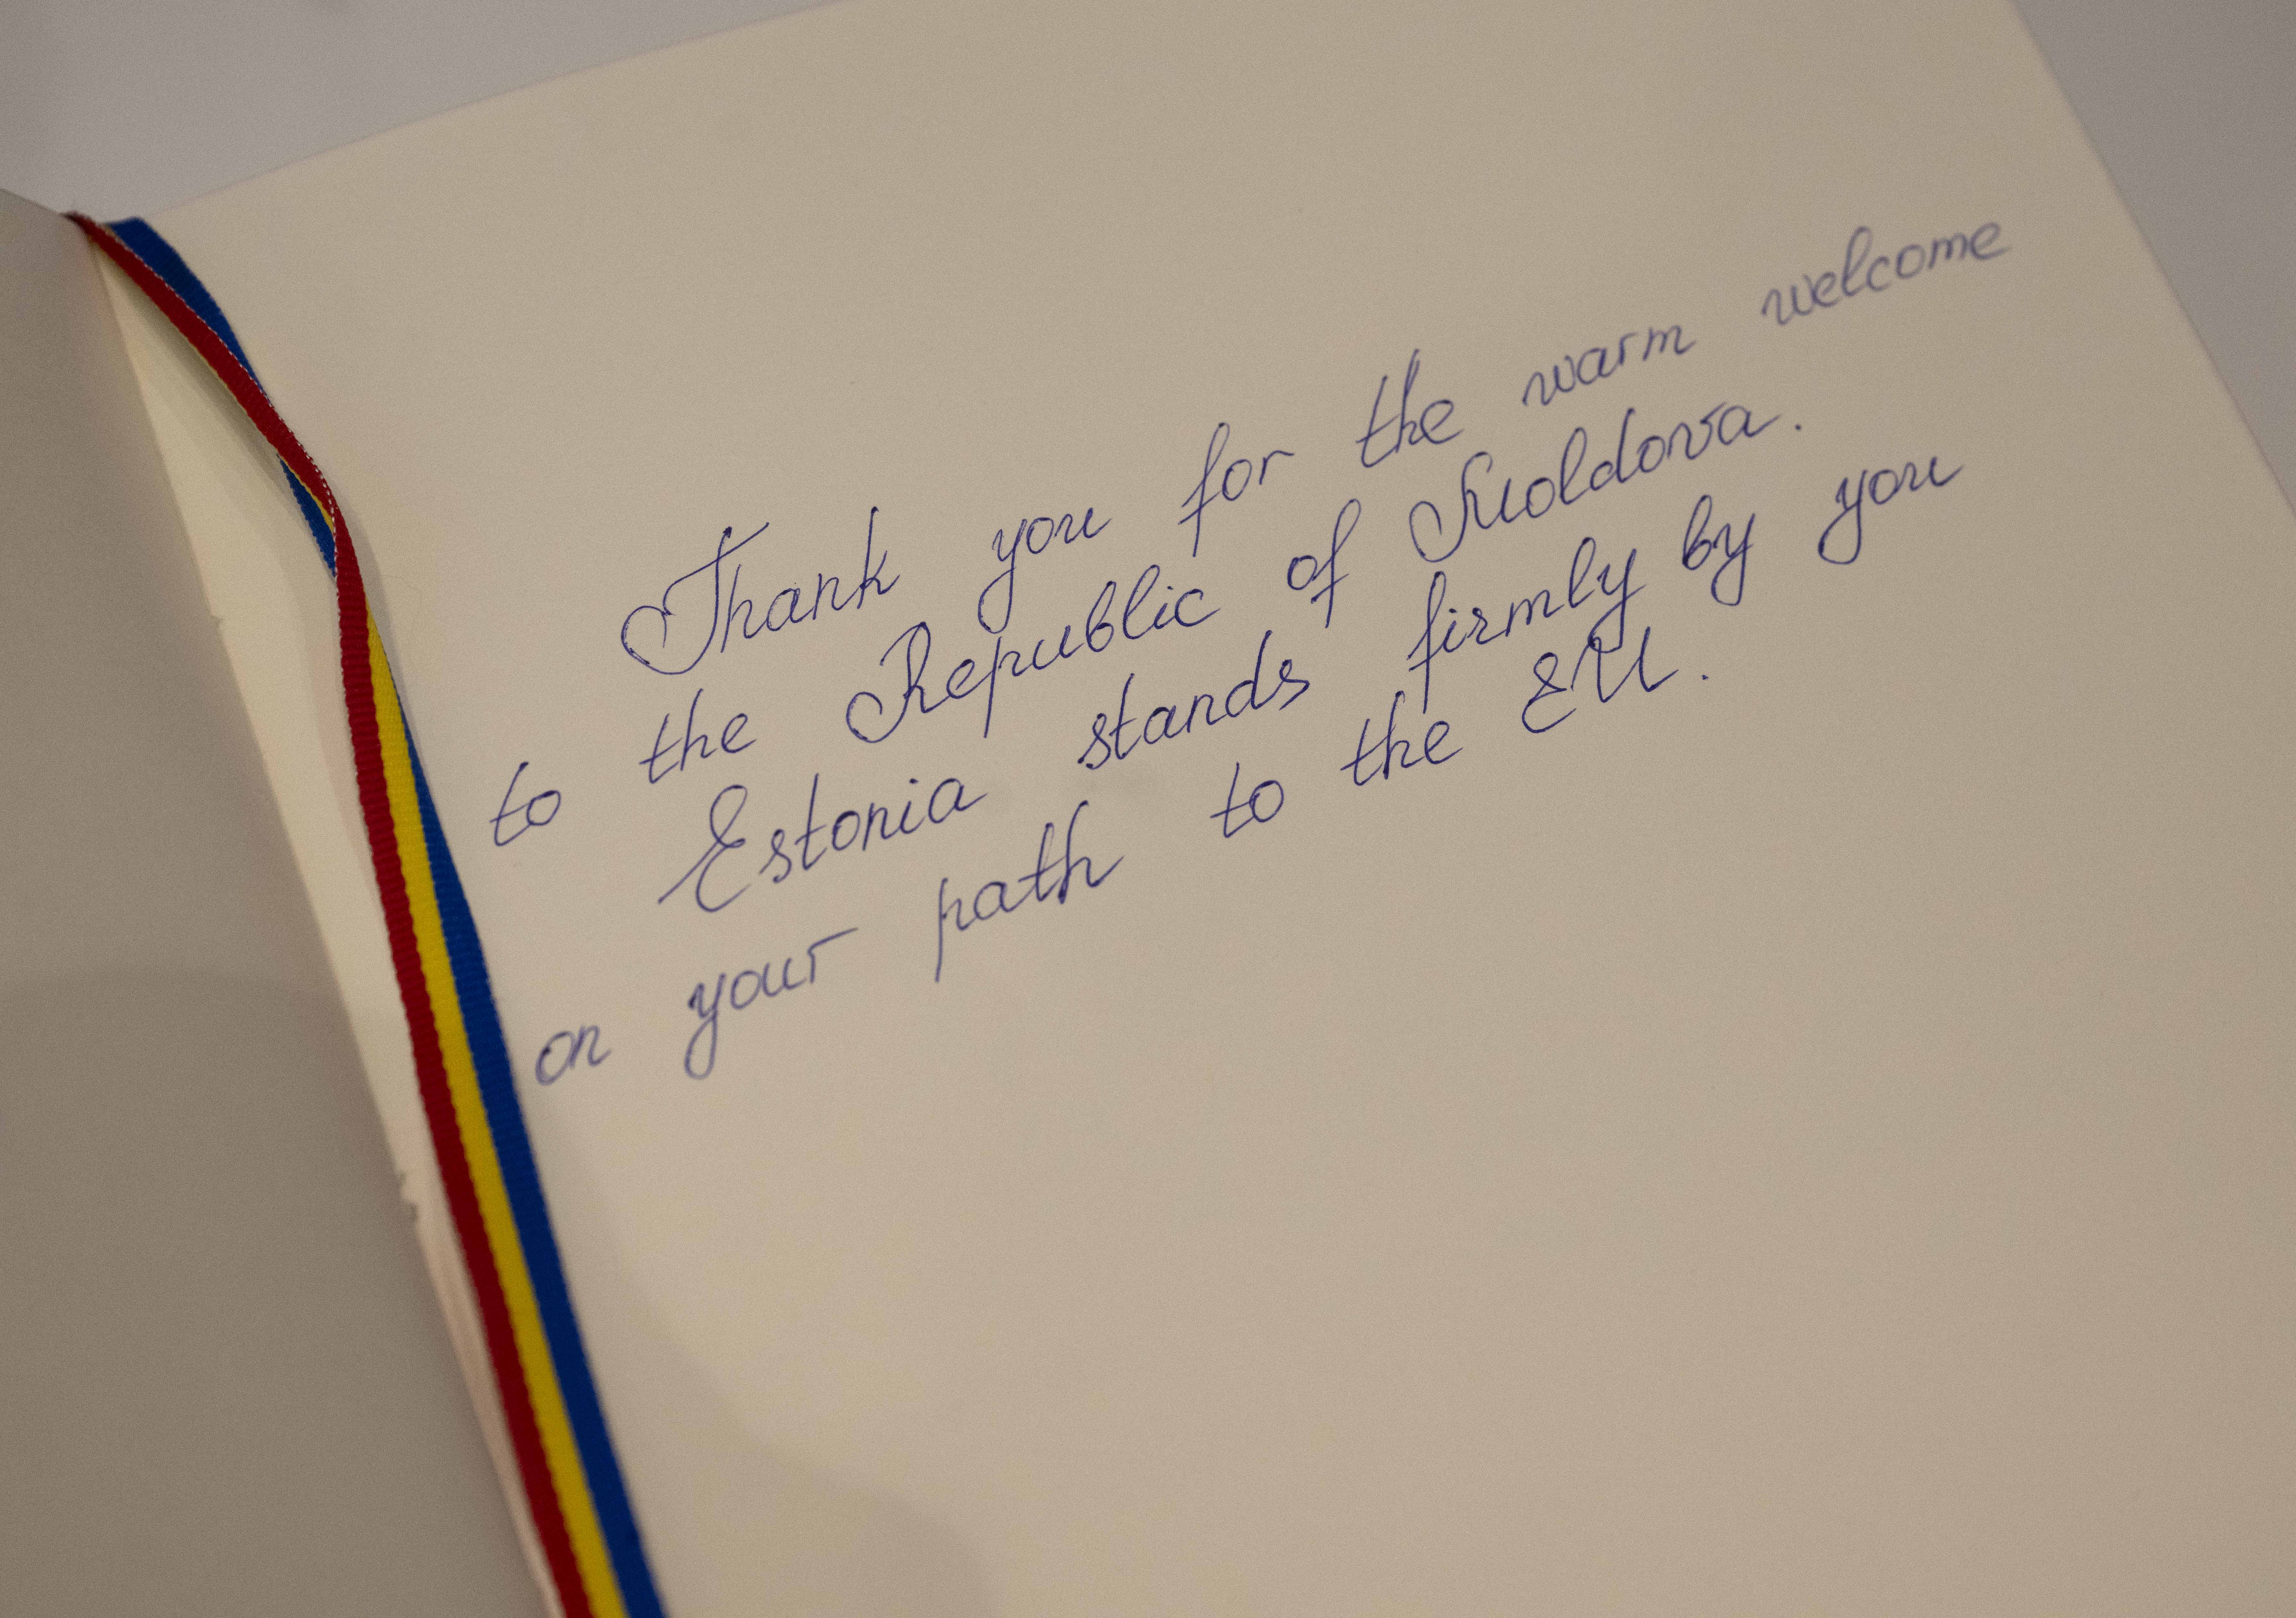 Thank you for the warm welcome
to the Republic of Moldova.
Estonia stands firmly by you
on your path to the EU.